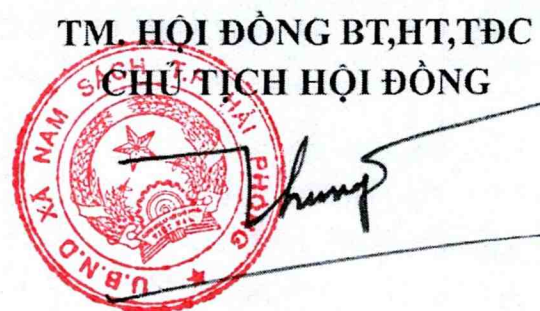 TM. HỘI ĐỒNG BT,HT,TĐC
CHỦ TỊCH HỘI ĐỒNG
U.B.N.D XÃ NAM SÁCH T.P HẢI PHÒNG